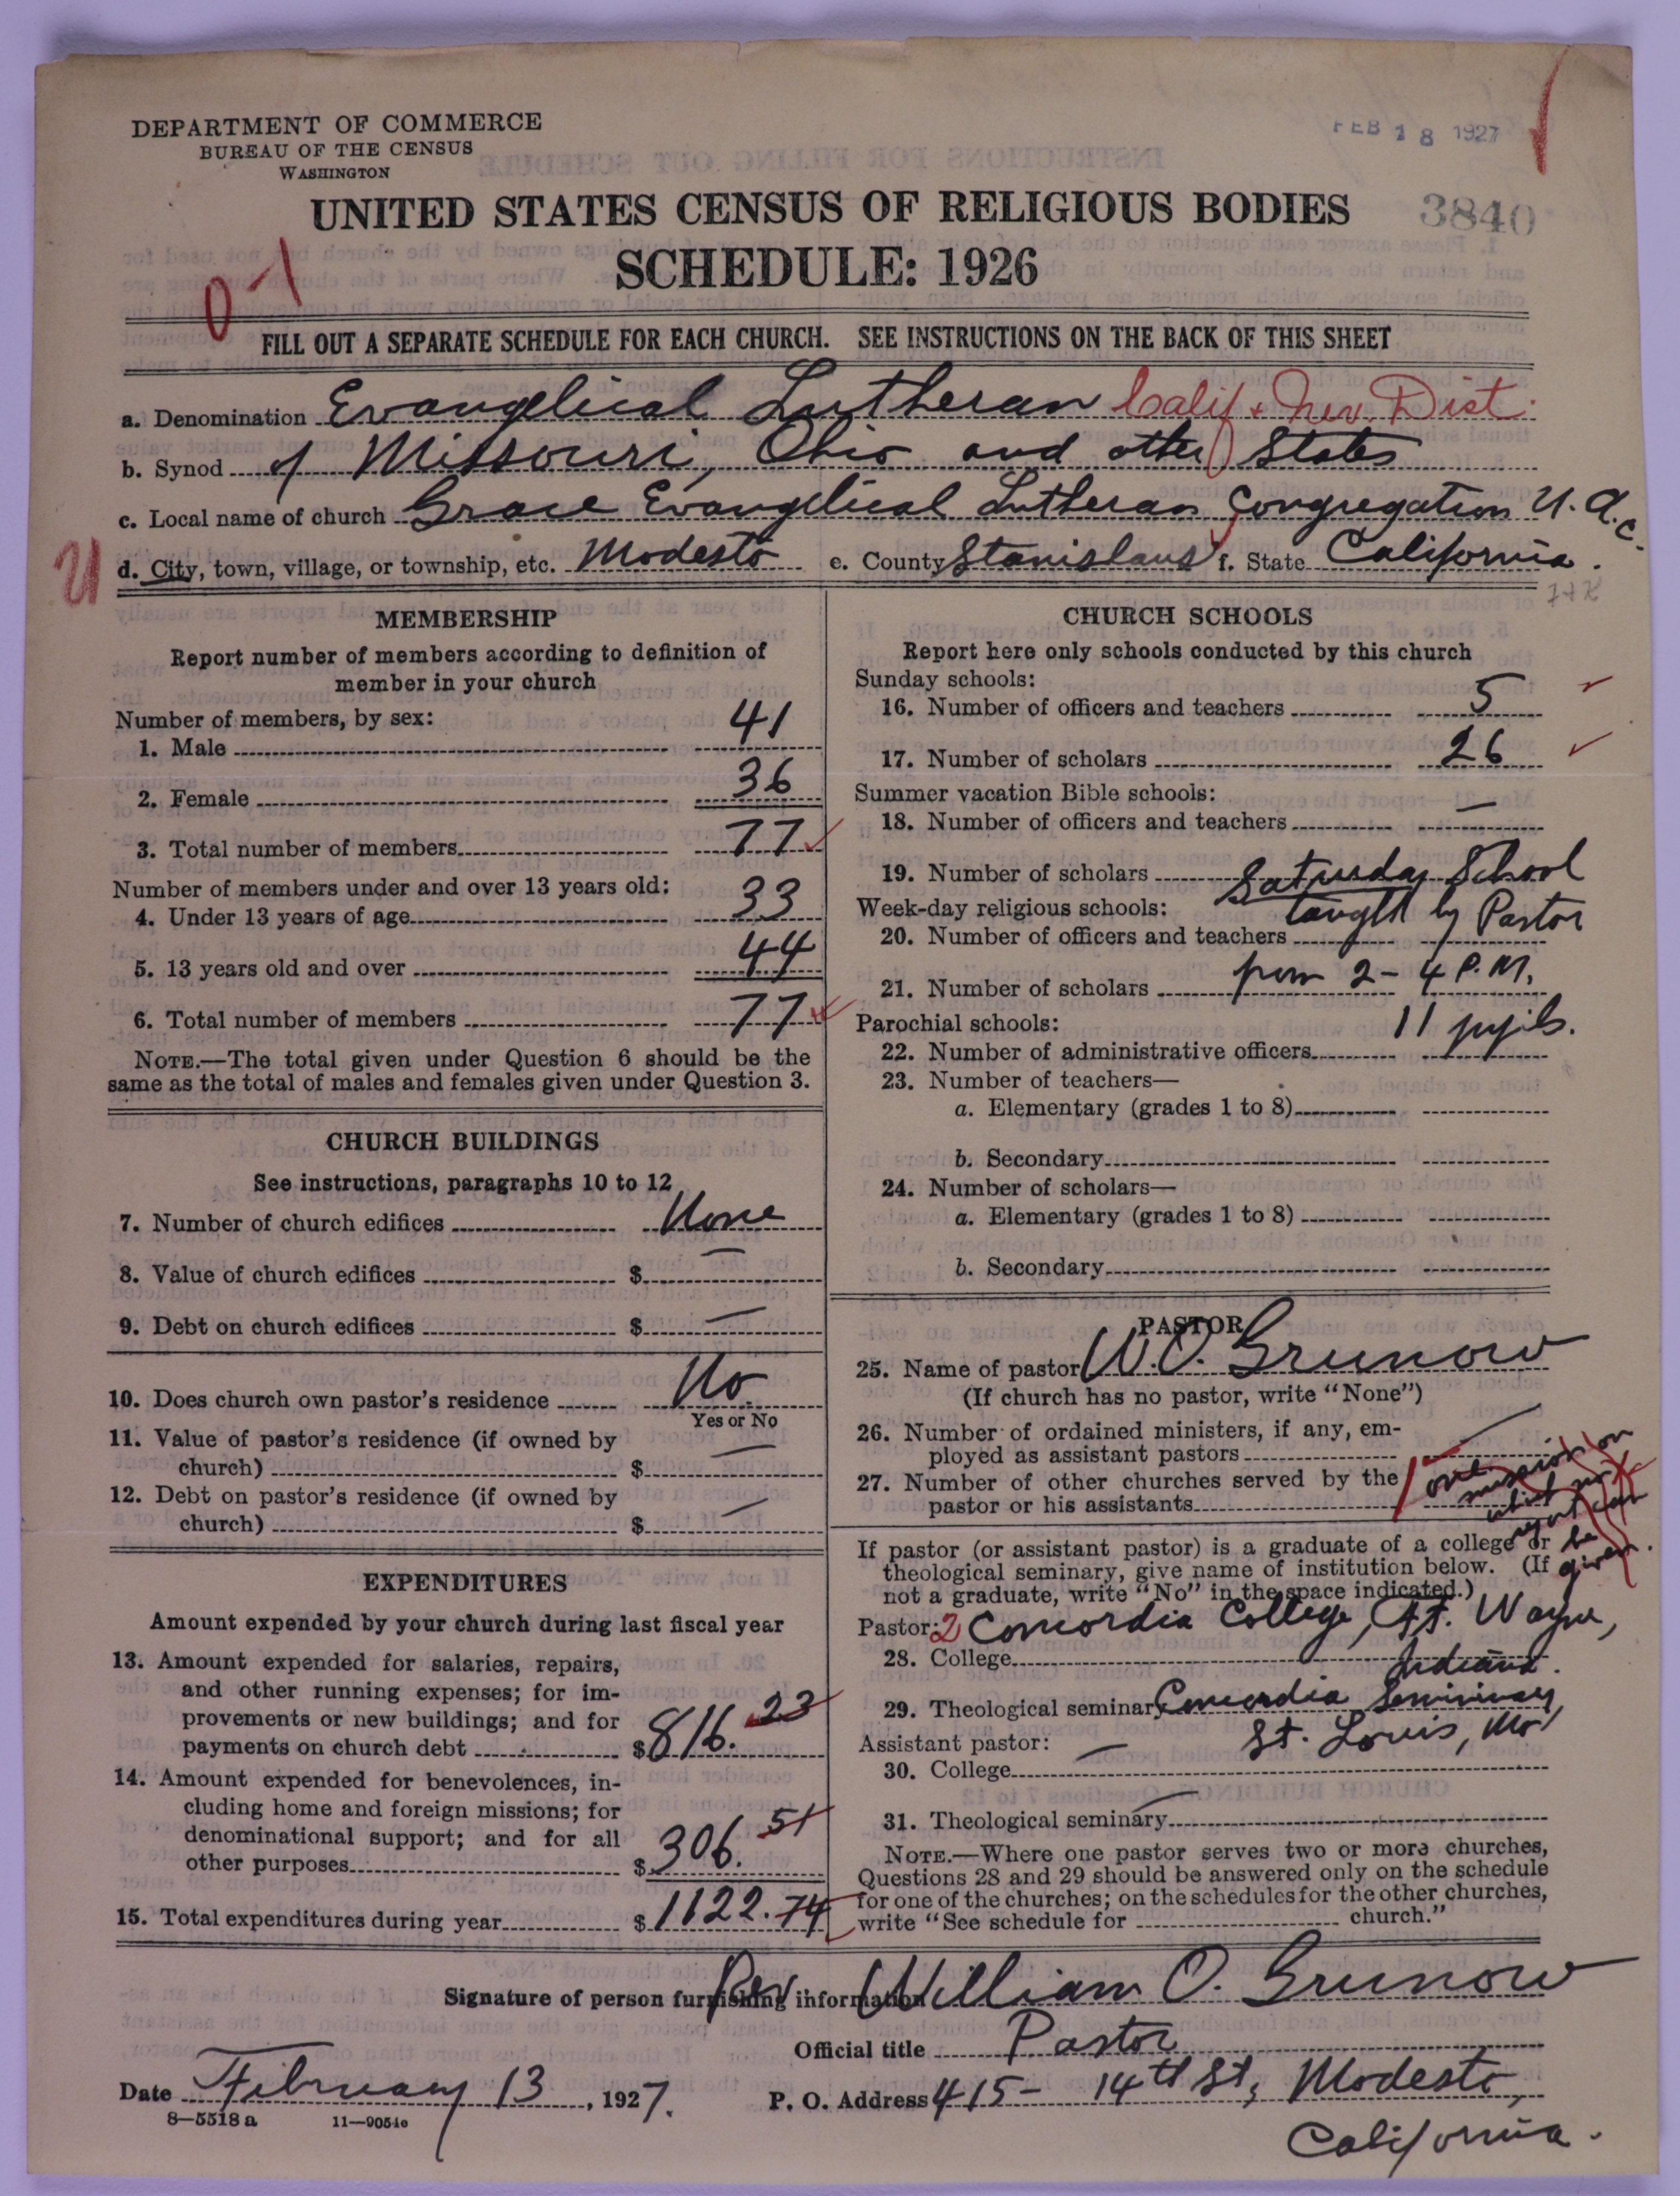 DEPARTMENT OF COMMERCE
BUREAU OF THE CENSUS
WASHINGTON
FEB 18 1927
UNITED STATES CENSUS OF RELIGIOUS BODIES
3840
SCHEDULE: 1926
FILL OUT A SEPARATE SCHEDULE FOR EACH CHURCH. SEE INSTRUCTIONS ON THE BACK OF THIS SHEET
a. Denomination Evangelical Lutheran Calif + Nev. Dist.
b. Synod of Missouri, Ohio and other States
c. Local name of church Grace Evangelical Lutheran Congregation U. A. C.
U
d. City, town, village, or township, etc. Modesto e. County Stanislaus f. State California.
MEMBERSHIP
Report number of members according to definition of
member in your church
Number of members, by sex:
1. Male 41
2. Female 36
3. Total number of members 77
Number of members under and over 13 years old:
4. Under 13 years of age 33
5. 13 years old and over 44
6. Total number of members 77
NOTE.—The total given under Question 6 should be the
same as the total of males and females given under Question 3.
CHURCH BUILDINGS
See instructions, paragraphs 10 to 12
7. Number of church edifices None
8. Value of church edifices $ —
9. Debt on church edifices $ —
10. Does church own pastor's residence No
Yes or No
11. Value of pastor's residence (if owned by
church) $ —
12. Debt on pastor's residence (if owned by
church) $ —
EXPENDITURES
Amount expended by your church during last fiscal year
13. Amount expended for salaries, repairs,
and other running expenses; for im-
provements or new buildings; and for
payments on church debt $816.23
14. Amount expended for benevolences, in-
cluding home and foreign missions; for
denominational support; and for all
other purposes $306.51
15. Total expenditures during year $1122.74
CHURCH SCHOOLS
Report here only schools conducted by this church
Sunday schools:
16. Number of officers and teachers 5
17. Number of scholars 26
Summer vacation Bible schools:
18. Number of officers and teachers —
19. Number of scholars Saturday School
Week-day religious schools: taught by Pastor
20. Number of officers and teachers
21. Number of scholars from 2 - 4 P.M.
Parochial schools: 11 pupils.
22. Number of administrative officers
23. Number of teachers—
a. Elementary (grades 1 to 8)
b. Secondary
24. Number of scholars—
a. Elementary (grades 1 to 8)
b. Secondary
PASTOR
25. Name of pastor W. O. Grunow
(If church has no pastor, write "None")
26. Number of ordained ministers, if any, em-
ployed as assistant pastors —
27. Number of other churches served by the
pastor or his assistants
one mission on
which no
report can
be
given.
If pastor (or assistant pastor) is a graduate of a college or
theological seminary, give name of institution below. (If
not a graduate, write "No" in the space indicated.)
Pastor: 2 Concordia College, Ft. Wayne,
28. College Indiana.
29. Theological seminary Concordia Seminary
Assistant pastor: — St. Louis, Mo
30. College
31. Theological seminary —
NOTE.—Where one pastor serves two or more churches,
Questions 28 and 29 should be answered only on the schedule
for one of the churches; on the schedules for the other churches,
write "See schedule for church."
Signature of person furnishing information Rev William O. Grunow
Official title Pastor
Date February 13, 1927. P. O. Address 415- 14th St, Modesto,
8—5518 a 11—9054c
California.